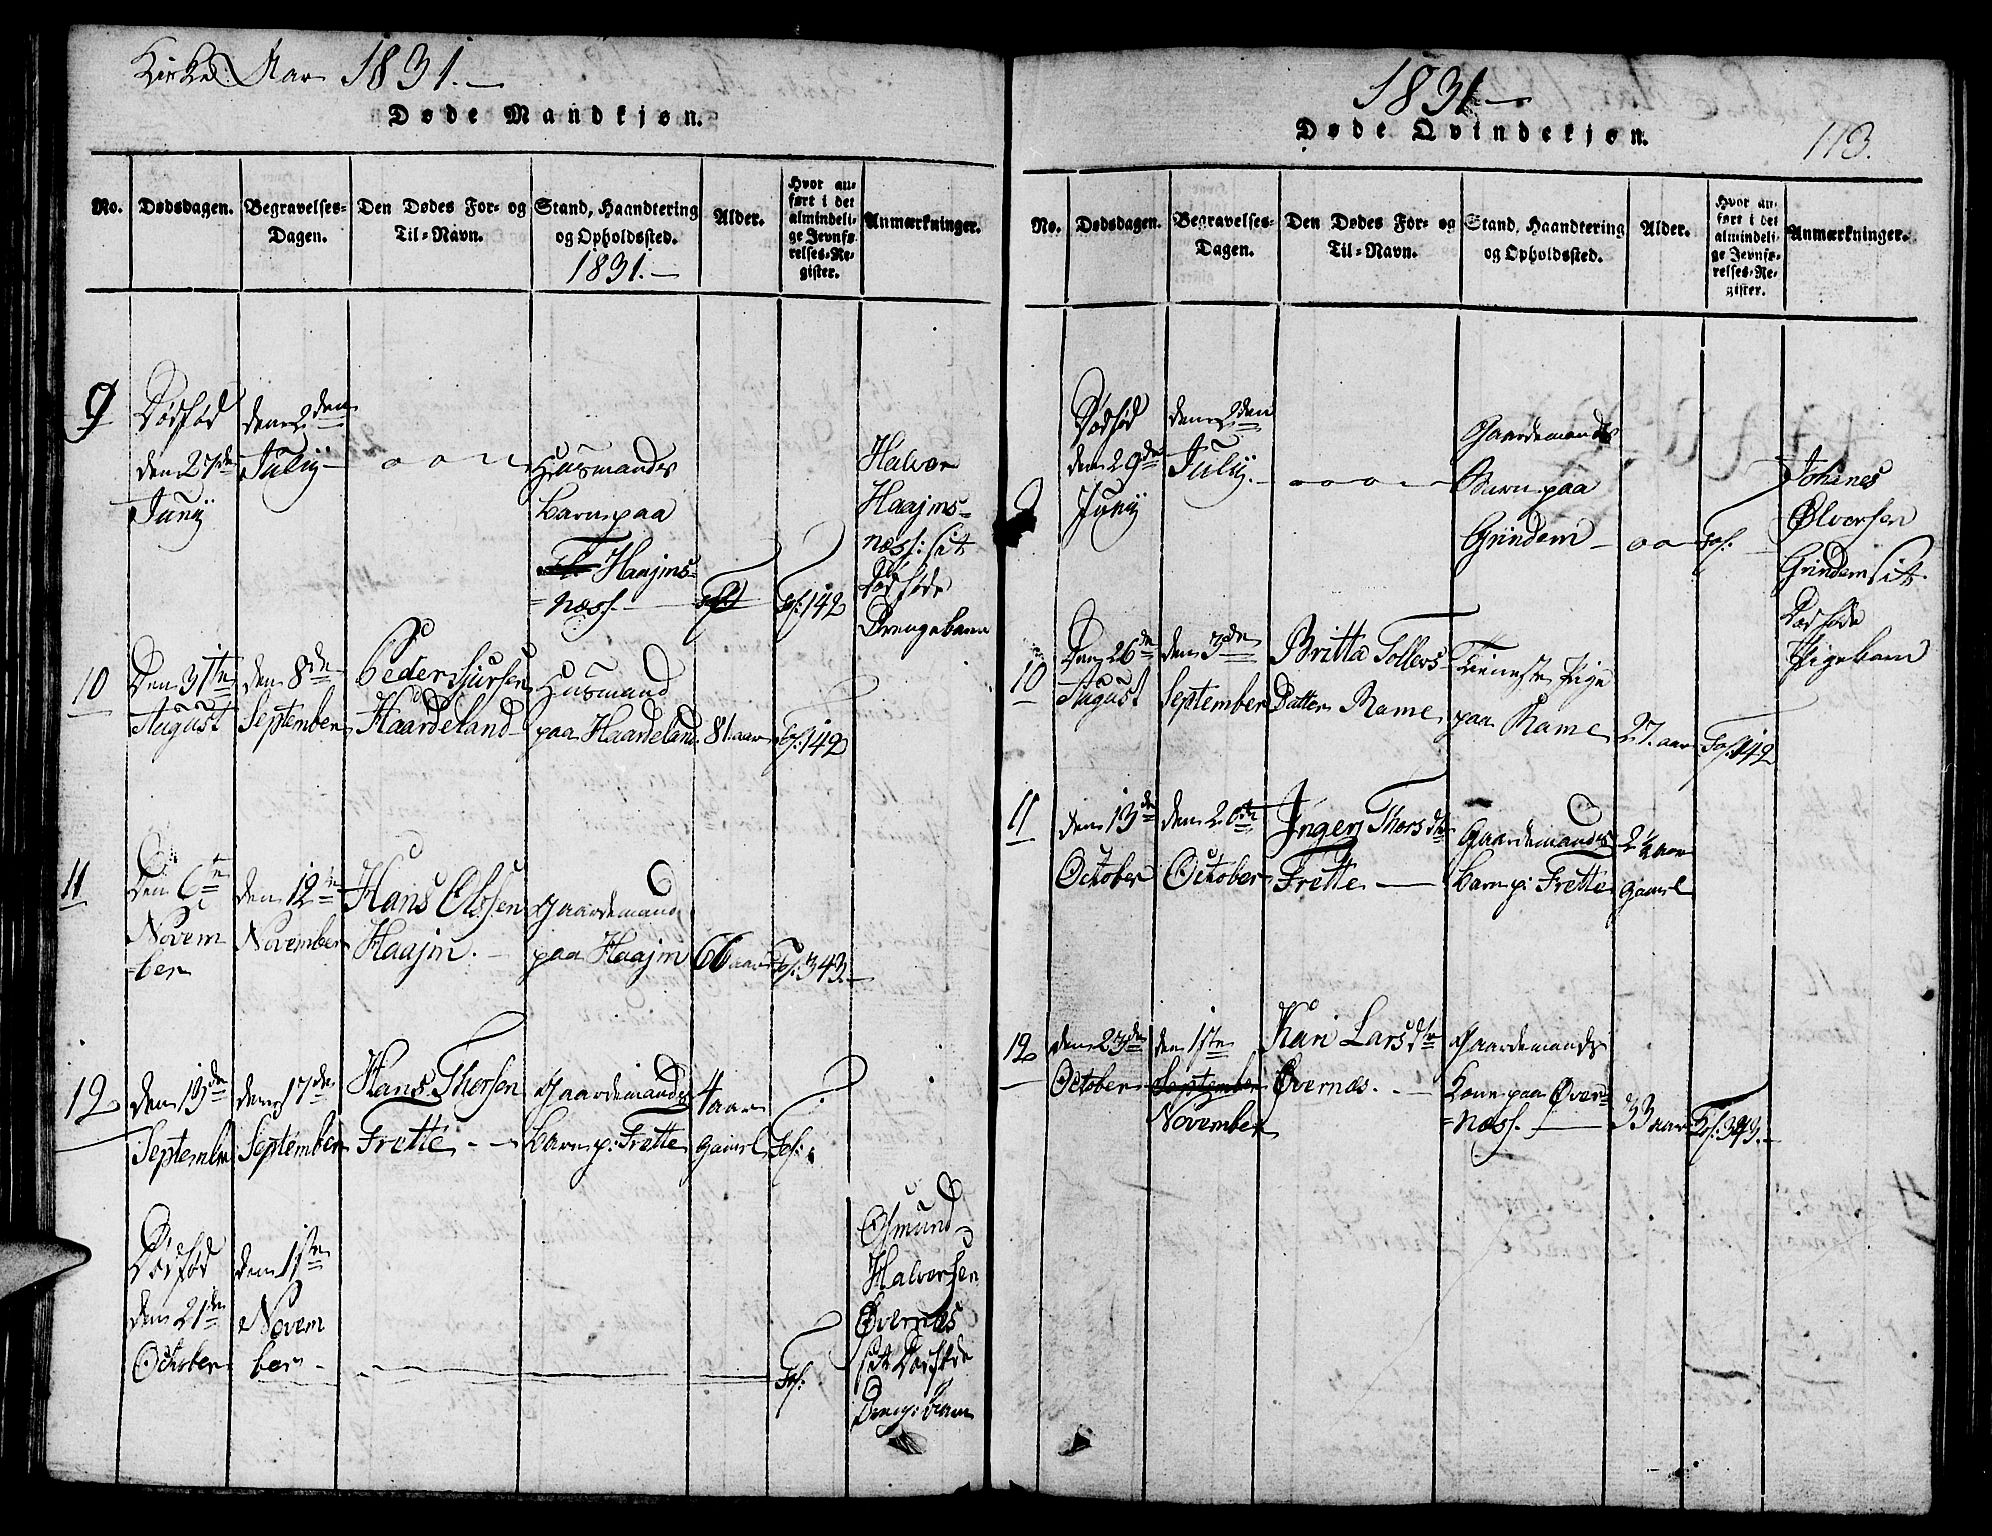 Kirke Aar 1831.
Døde Mandkjøn.
No.
Dødsdagen.
Begravelses-
Dagen.
Den Dødes For- og
Til-Navn.
Stand, Haandtering
og Opholdssted.
1831.
Alder.
Hvor an-
ført i det
almindeli-
ge Jevnfø-
relses-Re-
gister.
Anmærkninger.
9
Dødfød
den 27de
Juny
den 2den
July
Huusmands
Barn paa
Haajms-
næss.
Fol: 142
Halvor
Haajms-
næss: sit
Dødføde
Drengebarn
10
Den 31te
August
den 8de
September
Peder Sjursen
Haardeland
Huusmand
paa Haardeland
81 aar
Fol: 142
11
Den 6te
Novem
ber
den 12te
November
Hans Olssen
Haajm.
Gaardemand
paa Haajm
66 aar
Fol: 343.
12
den 13de
September
den 17de
September
Hans Thorsen
Frette
Gaardemands
barn p: Frette
4 aar
gaml
Fol:
Dødfød
den 21de
October
den 1ste
Novem
ber
Fol:
Osmund
Halvorsen
Øvernæs
sit Dødføde
Drenge barn
1831
Døde Qvindekjøn.
113.
No.
Dødsdagen.
Begravelses-
Dagen.
Den Dødes For- og
Til-Navn.
Stand, Haandtering
og Opholdssted.
Alder.
Hvor an-
ført i det
almindeli-
ge Jevnfø-
relses-Re-
gister.
Anmærkninger.
9
Dødfød
den 29de
Juny
den 2den
July.
Gaardemands
Barn paa
Grindem
Fol:
Johanes
Ølversen
Grindem sit
Dødføde
Pigebarn
10
Den 26de
August
den 3de
September
Britta Tollers
Datter Rame
Tieneste Pige
paa Rame
27. aar
Fol: 142
11
den 13de
October
den 20de
October
Inger Thorsdtr
Frette
Gaardemands
barn p: Frette
2½ aar
gaml
12
den 23de
October
den 1ste
September
November
Kari Larsdtr
Øvernæs.
Gaardemands
Kone paa Øver-
næss.
33 aar
Fol: 343.